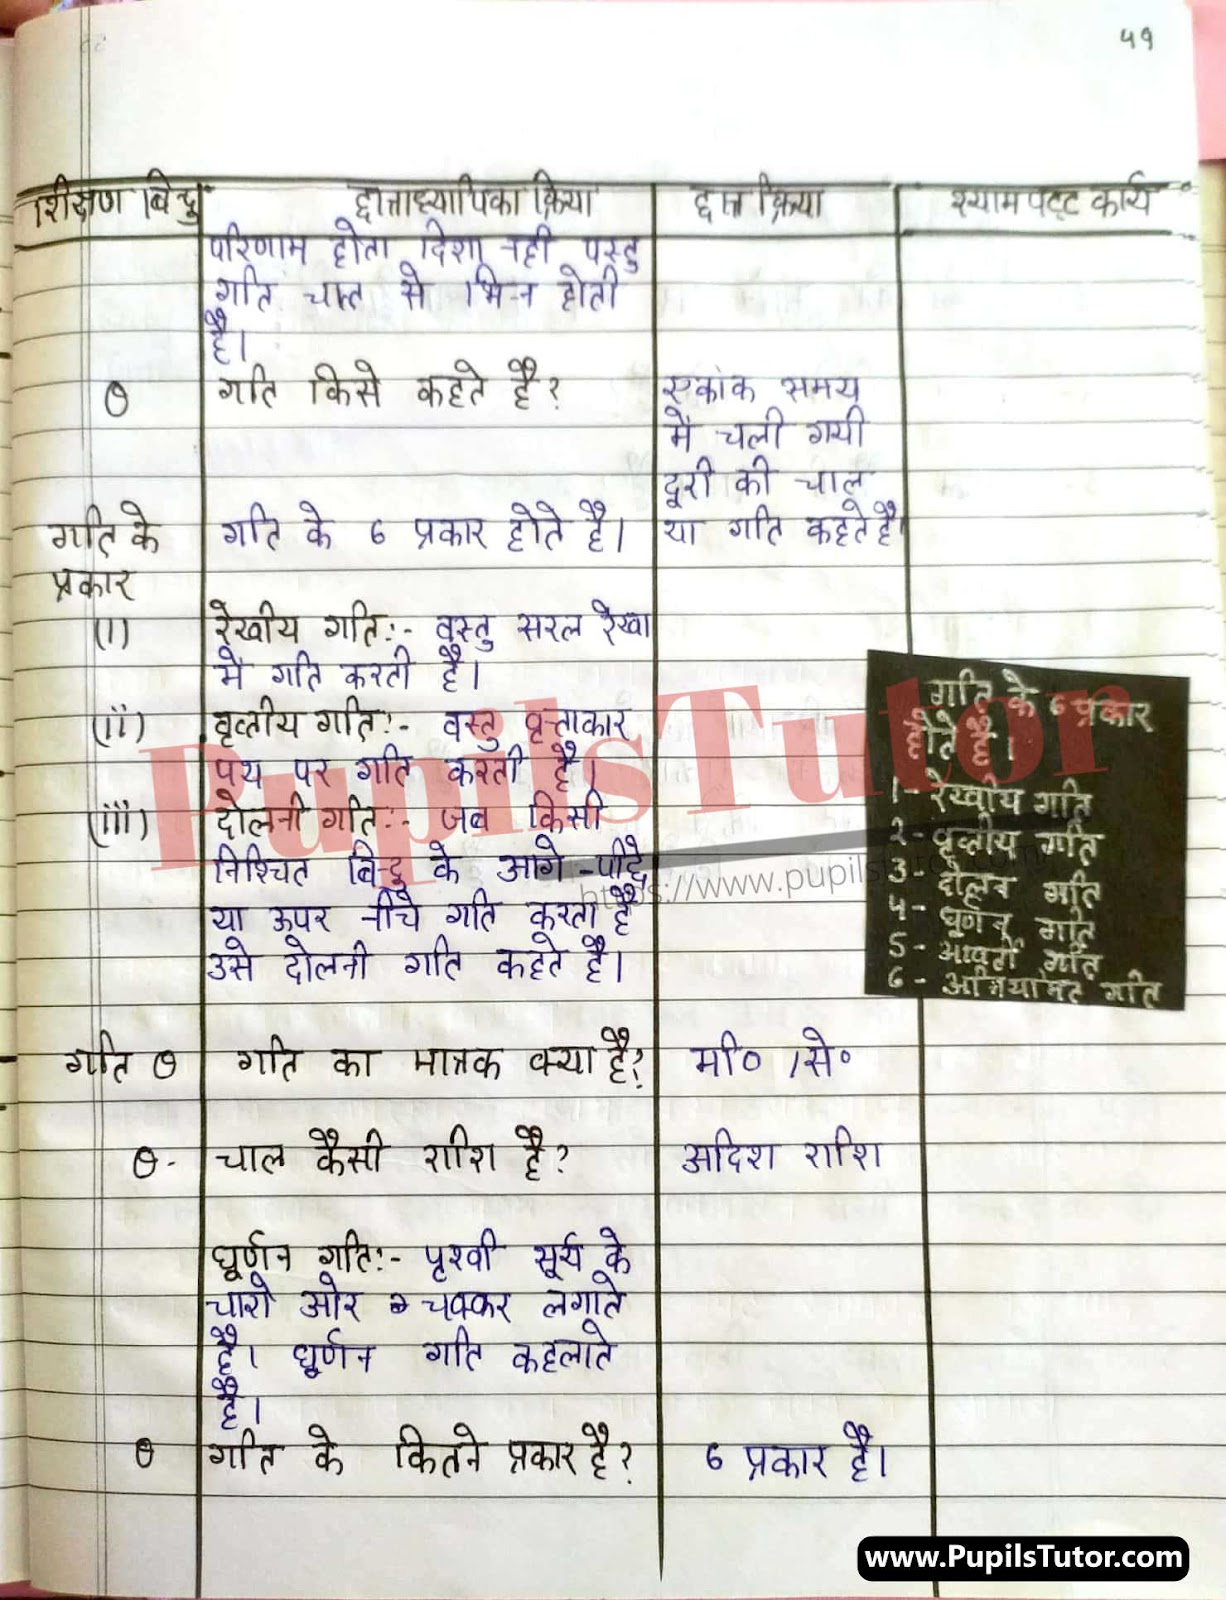 ५१
शिक्षण बिन्दु छात्राध्यापिका क्रिया छात्र क्रिया श्यामपट्ट कार्य
परिणाम होता दिशा नही परन्तु
गति चाल से भिन्न होती
है।
θ गति किसे कहते है? एकांक समय
में चली गयी
दूरी को चाल
गति के गति के 6 प्रकार होते है। या गति कहते है।
प्रकार
(i) रेखीय गति:- वस्तु सरल रेखा
में गति करती है।
(ii) वृत्तीय गति:- वस्तु वृत्ताकार
पथ पर गति करती है।
(iii) दोलनी गति:- जब किसी
निश्चित बिन्दु के आगे-पीछे
या ऊपर नीचे गति करता है
उसे दोलनी गति कहते है।
गति के 6 प्रकार
होते है।
1- रेखीय गति
2- वृत्तीय गति
3- दोलन गति
4- घूर्णन गति
5- आवर्ती गति
6- अनियमित गति
गति θ गति का मात्रक क्या है? मी० /से०
θ- चाल कैसी राशि है? अदिश राशि
घूर्णन गति:- पृथ्वी सूर्य के
चारो ओर चक्कर लगाते
है। घूर्णन गति कहलाते
है।
θ गति के कितने प्रकार है? 6 प्रकार है।
PupilsTutor
https://www.pupilstutor.com
www.PupilsTutor.com